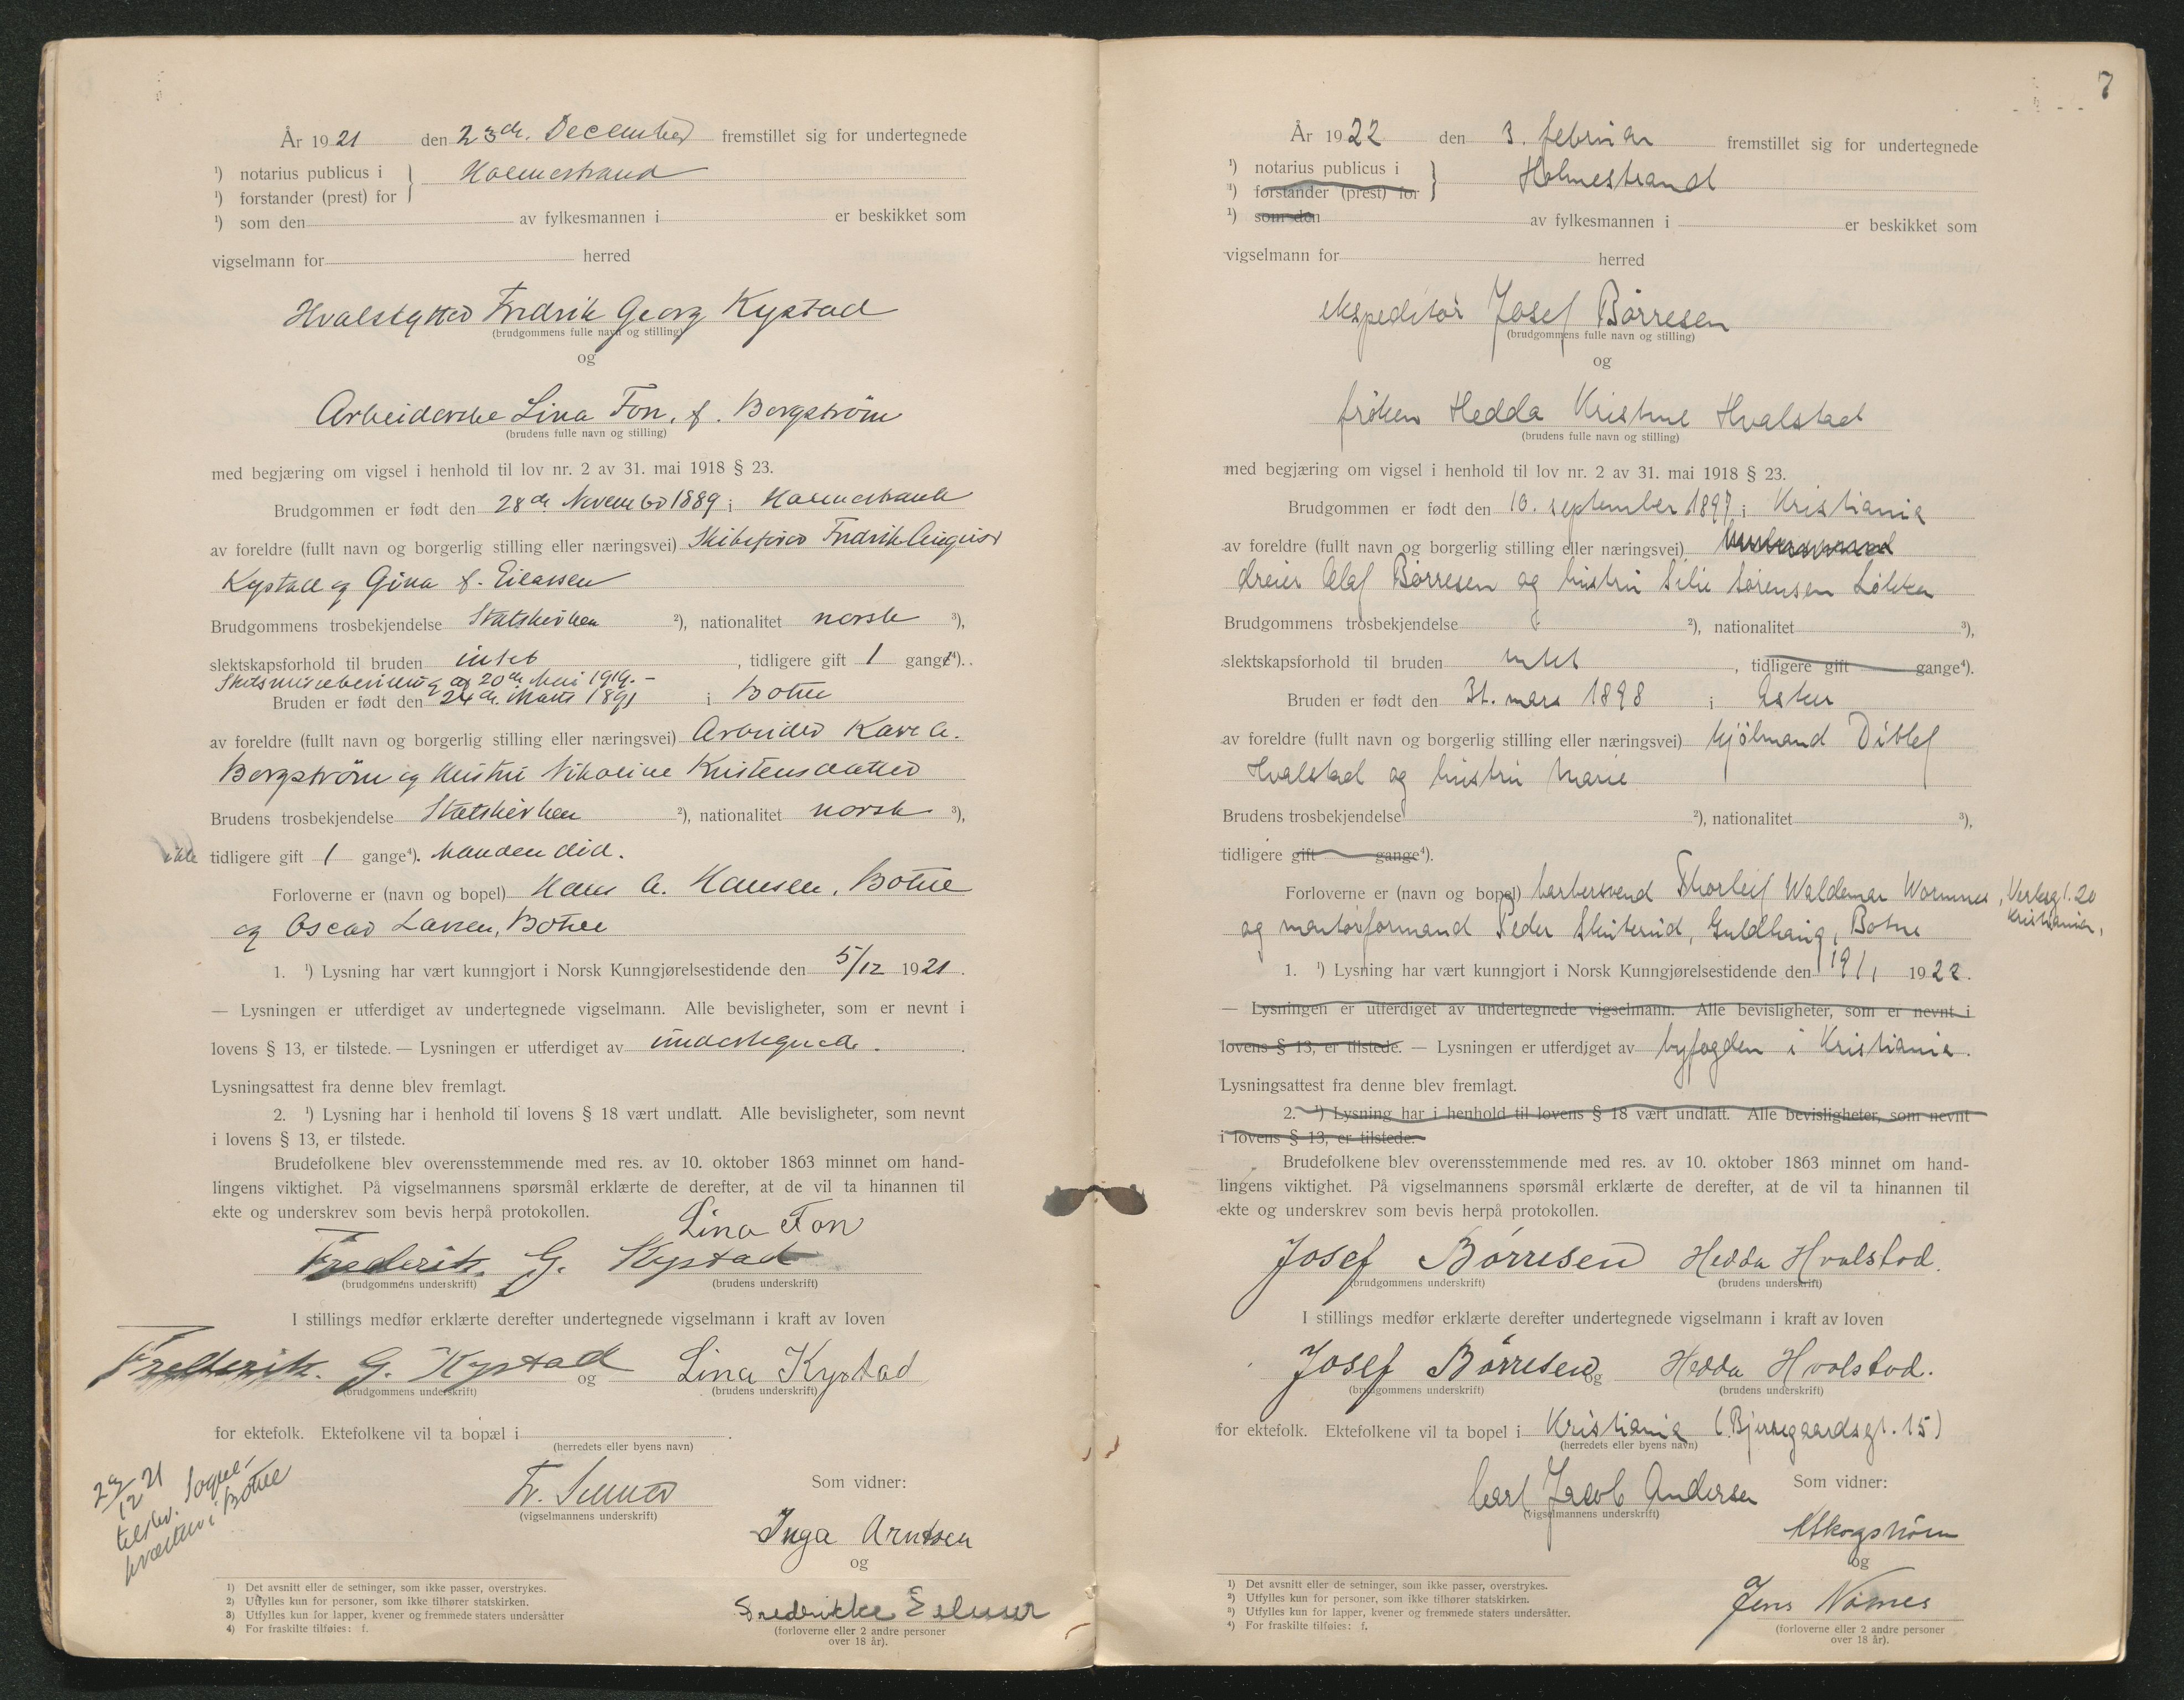 År 1921 den 23de December fremstillet sig for undertegnede
¹) notarius publicus i } Holmestrand
¹) forstander (prest) for
¹) som den av fylkesmannen i er beskikket som
vigselmann for herred
Hvalskytter Fredrik Georg Kystad
(brudgommens fulle navn og stilling)
og
Arbeiderske Lina Fon, f. Bergström
(brudens fulle navn og stilling)
med begjæring om vigsel i henhold til lov nr. 2 av 31. mai 1918 § 23.
Brudgommen er født den 28de November 1889 i Holmestrand
av foreldre (fullt navn og borgerlig stilling eller næringsvei) Skibsfører Fredrik August
Kystad og Gina f. Eilassen
Brudgommens trosbekjendelse Statskirken ²), nationalitet norsk ³),
slektskapsforhold til bruden intet , tidligere gift 1 gange⁴).
Skilsmissebevilling af 20de Mai 1919. –
Bruden er født den 24de Marts 1891 i Botne
av foreldre (fullt navn og borgerlig stilling eller næringsvei) Arbeider Karl A.
Bergström og Hustru Nikoline Kristensdatter
Brudens trosbekjendelse Statskirken ²), nationalitet norsk ³),
ikke tidligere gift 1 gange⁴). Manden død.
Forloverne er (navn og bopel) Hans A. Hansen, Botne
og Oscar Larsen, Botne
1. ¹) Lysning har vært kunngjort i Norsk Kunngjørelsestidende den 5/12 1921.
— Lysningen er utferdiget av undertegnede vigselmann. Alle bevisligheter, som er nevnt i
lovens § 13, er tilstede. — Lysningen er utferdiget av undertegnede.
Lysningsattest fra denne blev fremlagt.
2. ¹) Lysning har i henhold til lovens § 18 vært undlatt. Alle bevisligheter, som nevnt
i lovens § 13, er tilstede.
Brudefolkene blev overensstemmende med res. av 10. oktober 1863 minnet om hand-
lingens viktighet. På vigselmannens spørsmål erklærte de derefter, at de vil ta hinannen til
ekte og underskrev som bevis herpå protokollen.
Lina Fon
Frederik. G. Kystad
(brudgommens underskrift) (brudens underskrift)
I stillings medfør erklærte derefter undertegnede vigselmann i kraft av loven
Frederik. G. Kystad og Lina Kystad
(brudgommens underskrift) (brudens underskrift)
for ektefolk. Ektefolkene vil ta bopæl i .
(herredets eller byens navn)
29/12 21
tilskr. Sogne-
præsten i Botne
Som vidner:
Fr.
(vigselmannens underskrift)
Inga Arntsen
og
Fredrikke
(forloverne eller 2 andre personer
over 18 år).
1) Det avsnitt eller de setninger, som ikke passer, overstrykes.
2) Utfylles kun for personer, som ikke tilhører statskirken.
3) Utfylles kun for lapper, kvener og fremmede staters undersåtter
4) For fraskilte tilføies: f.
7
År 1922 den 3. februar fremstillet sig for undertegnede
¹) notarius publicus i } Holmestrand
¹) forstander (prest) for
¹) som den av fylkesmannen i er beskikket som
vigselmann for herred
ekspeditør Josef Børresen
(brudgommens fulle navn og stilling)
og
frøken Hedda Kristine Hvalstad
(brudens fulle navn og stilling)
med begjæring om vigsel i henhold til lov nr. 2 av 31. mai 1918 § 23.
Brudgommen er født den 10. september 1897 i Kristiania
av foreldre (fullt navn og borgerlig stilling eller næringsvei)
dreier Olaf Børresen og hustru Silie Sørensen Løkka
Brudgommens trosbekjendelse ²), nationalitet ³),
slektskapsforhold til bruden intet , tidligere gift gange⁴).
Bruden er født den 31. mars 1898 i Asker
av foreldre (fullt navn og borgerlig stilling eller næringsvei) hjólmand Ditlef
Hvalstad og hustru Marie
Brudens trosbekjendelse ²), nationalitet ³),
tidligere gift gange⁴).
Forloverne er (navn og bopel) barbersvend Thorleif Waldemar Wormnes, Verksgt. 20
Kristiania,
og montørformand Peder Skuterud, Guldhaug, Botne
1. ¹) Lysning har vært kunngjort i Norsk Kunngjørelsestidende den 19/1 1922.
— Lysningen er utferdiget av undertegnede vigselmann. Alle bevisligheter, som er nevnt i
lovens § 13, er tilstede. — Lysningen er utferdiget av byfogden i Kristiania.
Lysningsattest fra denne blev fremlagt.
2. ¹) Lysning har i henhold til lovens § 18 vært undlatt. Alle bevisligheter, som nevnt
i lovens § 13, er tilstede.
Brudefolkene blev overensstemmende med res. av 10. oktober 1863 minnet om hand-
lingens viktighet. På vigselmannens spørsmål erklærte de derefter, at de vil ta hinannen til
ekte og underskrev som bevis herpå protokollen.
Josef Børresen Hedda Hvalstad.
(brudgommens underskrift) (brudens underskrift)
I stillings medfør erklærte derefter undertegnede vigselmann i kraft av loven
Josef Børresen og Hedda Hvalstad.
(brudgommens underskrift) (brudens underskrift)
for ektefolk. Ektefolkene vil ta bopel i Kristiania (Bjerregaardsgt. 15)
(herredets eller byens navn)
Carl Jacob Andersen Som vidner:
(vigselmannens underskrift)
og
Jens
(forloverne eller 2 andre personer
over 18 år).
1) Det avsnitt eller de setninger, som ikke passer, overstrykes.
2) Utfylles kun for personer, som ikke tilhører statskirken.
3) Utfylles kun for lapper, kvener og fremmede staters undersåtter.
4) For fraskilte tilføies: f.